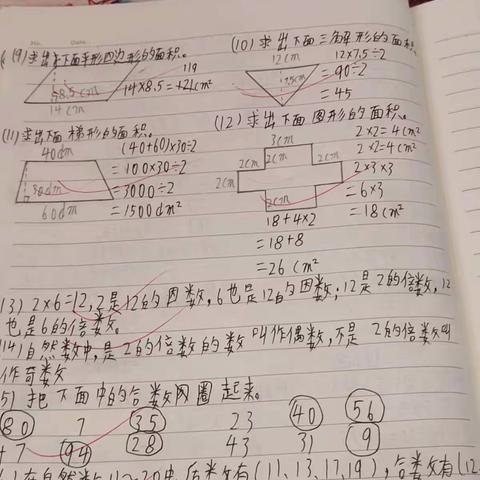 (9)求出下面平行四边形的面积。
8.5cm
14cm
119
14×8.5=121cm²
(10)求出下面三角形的面积
12cm
7.5cm
12×7.5÷2
=90÷2
=45
(11)求出下面梯形的面积。
40dm
30dm
60dm
(40+60)×30÷2
=100×30÷2
=3000÷2
=1500dm²
(12)求出下面图形的面积。
3cm
2cm
2cm
2cm
2cm
2×2=4cm²
2×2=4cm²
2×3×3
=6×3
=18cm²
18+4×2
=18+8
=26cm²
13) 2×6=12,2是12的因数,6也是12的因数;12是2的倍数,12
也是6的倍数。
14)自然数中,是2的倍数的数叫作偶数,不是2的倍数叫
作奇数
5)把下面中的合数用圈起来。
80 7 35 23 40 56
47 94 28 43 31 9
)在自然数11~20中,质数有(11、13、17、19),合数有(12